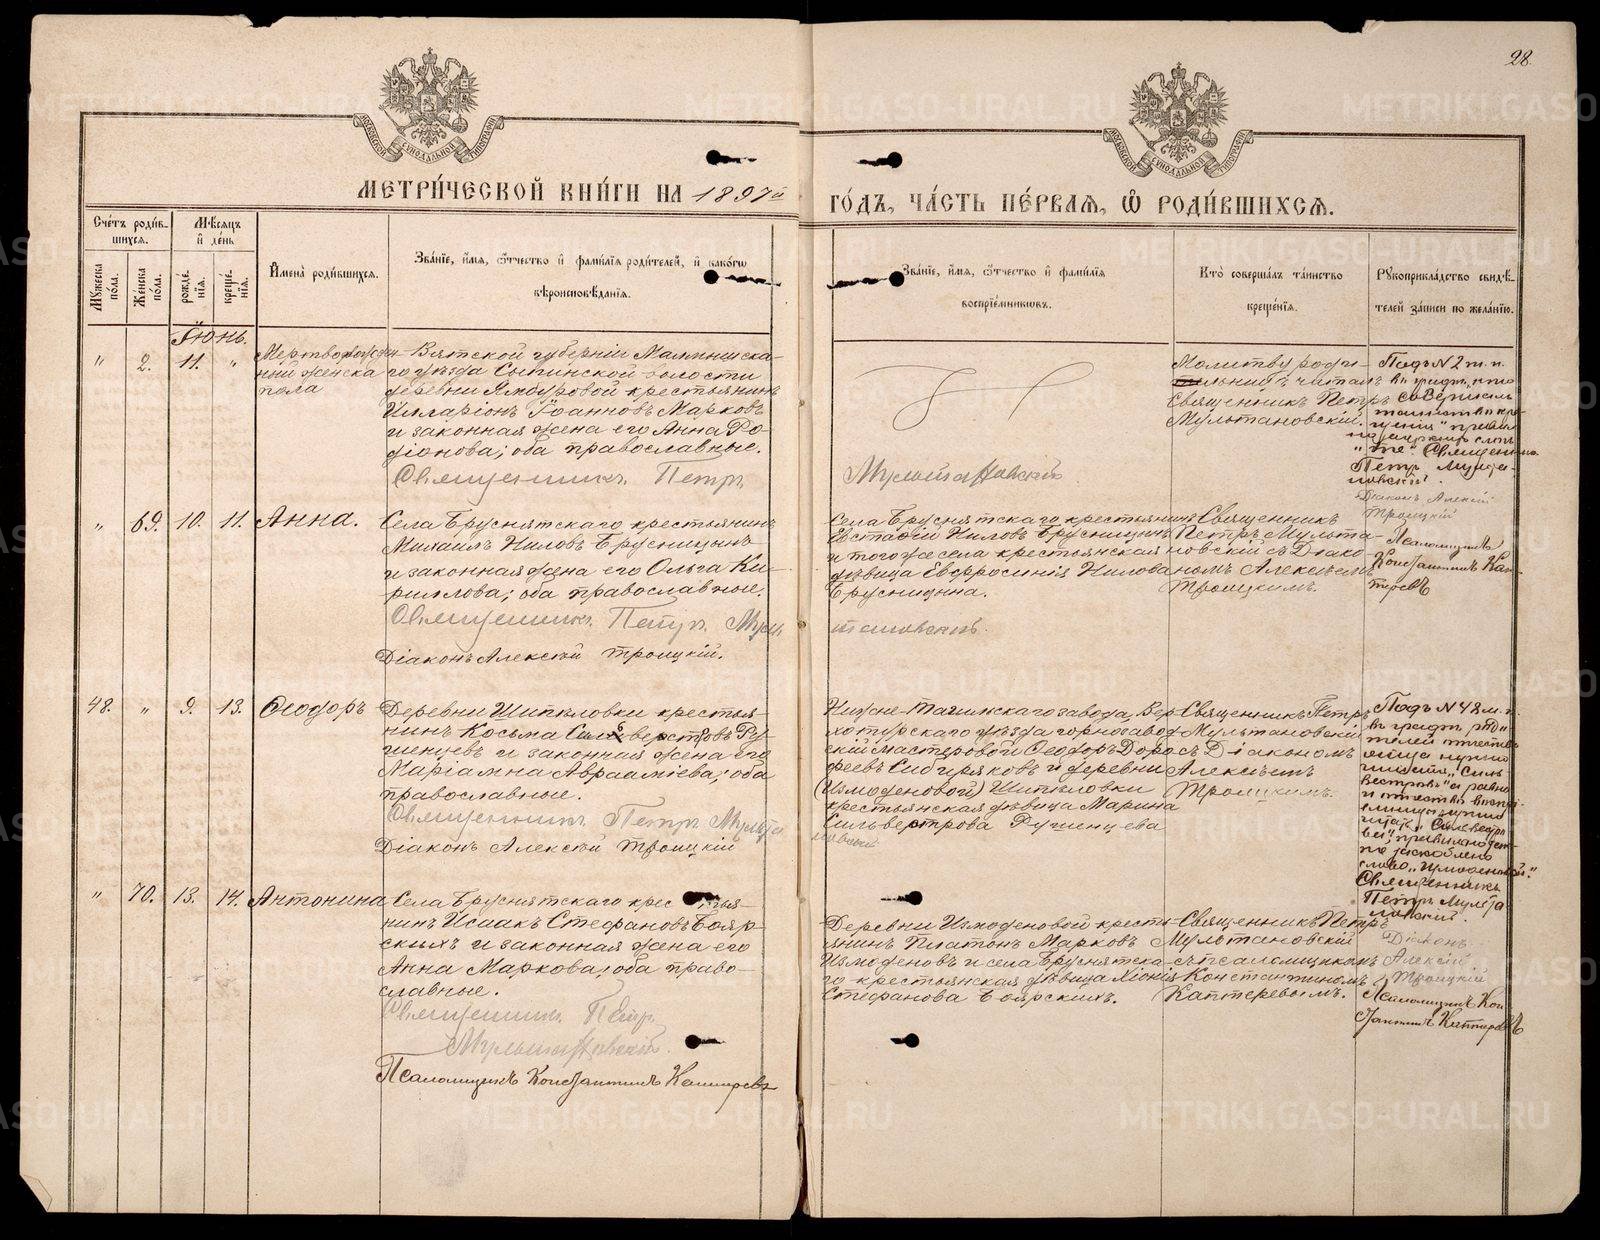 28.
МОСКОВСКОЙ СѴНОДАЛЬНОЙ ТИПОГРАФІИ
МОСКОВСКОЙ СѴНОДАЛЬНОЙ ТИПОГРАФІИ
МЕТРИ́ЧЕСКОЙ КНИ́ГИ НА 1897й
ГО́ДЪ, ЧА́СТЬ ПЕ́РВАЯ, Ѡ РОДИ́ВШИХСЯ.
Сче́тъ роди́в-
шихся.
Му́жеска по́ла.
Же́нска по́ла.
Мѣ́сяцъ
и де́нь
рожде́-
нія.
креще́-
нія.
Имена̀ роди́вшихся.
Зва́ніе, и́мя, ѻ҆́тчество и фами́лія роди́телей, и како́гѡ
вѣроисповѣ́данія.
Зва́ніе, и́мя, ѻ҆́тчество и фами́лія
воспріе́мниковъ.
Кто̀ соверша́лъ та́инство
креще́нія.
Рукоприкла́дство свидѣ́-
телей за́писи по жела́нію.
Іюнь.
" 2. 11. "
Мертворожден-
ный женска
пола
Вятской губерніи Малмыжска-
го уѣзда Сыпинской волости
деревни Ямбуровой крестьянинъ
Илларіонъ Іоанновъ Марковъ
и законная жена его Анна Ро-
діонова; оба православные.
Священникъ Петръ
Мультановскій
Молитву роди-
тельниц. читалъ
Священникъ Петръ
Мультановскій.
Подъ N 2 ж. п.
въ графѣ, кто
совершалъ
таинство кре-
щенія"
Священникъ
Петръ Мульта-
новскій.
Діаконъ Алексій
Троицкій
" 69. 10. 11. Анна.
Села Бруснятскаго крестьянинъ
Михаилъ Ниловъ Брусницынъ
и законная жена его Ольга Ки-
риллова; оба православные.
Священникъ Петръ Муль
тановскій.
Діаконъ Алексій Троицкій.
Села Бруснятскаго крестьянинъ
Евстафій Ниловъ Брусницынъ
и того же села крестьянская
дѣвица Евфросинія Нилова
Брусницына.
Священникъ
Петръ Мульта-
новскій съ Діако-
номъ Алексѣемъ
Троицкимъ.
Псаломщикъ
Константинъ Кап-
теревъ
48. " 9. 13. Ѳеодоръ
Деревни Шипѣловки крестья-
нинъ Косьма Сильверстровъ Ру-
шенцевъ и законная жена его
Маріамна Авраамiева; оба
православные.
Священникъ Петръ Мульта
новскій
Діаконъ Алексій Троицкій
Нижне-Тагильскаго завода, Вер-
хотурскаго уѣзда горнозавод-
скій мастеровой Ѳеодоръ Доро-
феевъ Сибиряковъ и деревни
(Измоденовой) Шипѣловки
крестьянская дѣвица Марина
Сильверстрова Рушенцева
Священникъ Петръ
Мультановскій
съ Діакономъ
Алексѣемъ
Троицкимъ.
Подъ N 48 м. п.
въ графѣ роди-
телей отчество
отца нужно
читать "Силь
вестровъ" а равно
и отчество воспрі-
емницы нужно
читать "Сильвестро
ва",
слово "Измоденовой."
Священникъ
Петръ Мульта
новскій.
Діаконъ
Алексій
Троицкій
" 70. 13. 14. Антонина
Села Бруснятскаго крестья-
нинъ Исаакъ Стефановъ Бояр-
скихъ и законная жена его
Анна Маркова; оба право-
славные.
Священникъ Петръ
Мультановскій.
Псаломщикъ Константинъ Каптеревъ
Деревни Измоденовой кресть-
янинъ Платонъ Марковъ
Измоденовъ и села Бруснятска-
го крестьянская дѣвица Хіонія
Стефанова Боярскихъ.
Священникъ Петръ
Мультановскій
съ псаломщикомъ
Константиномъ
Каптеревымъ.
Псаломщикъ Кон
стантинъ Каптеревъ
METRIKI.GASO-URAL.RU